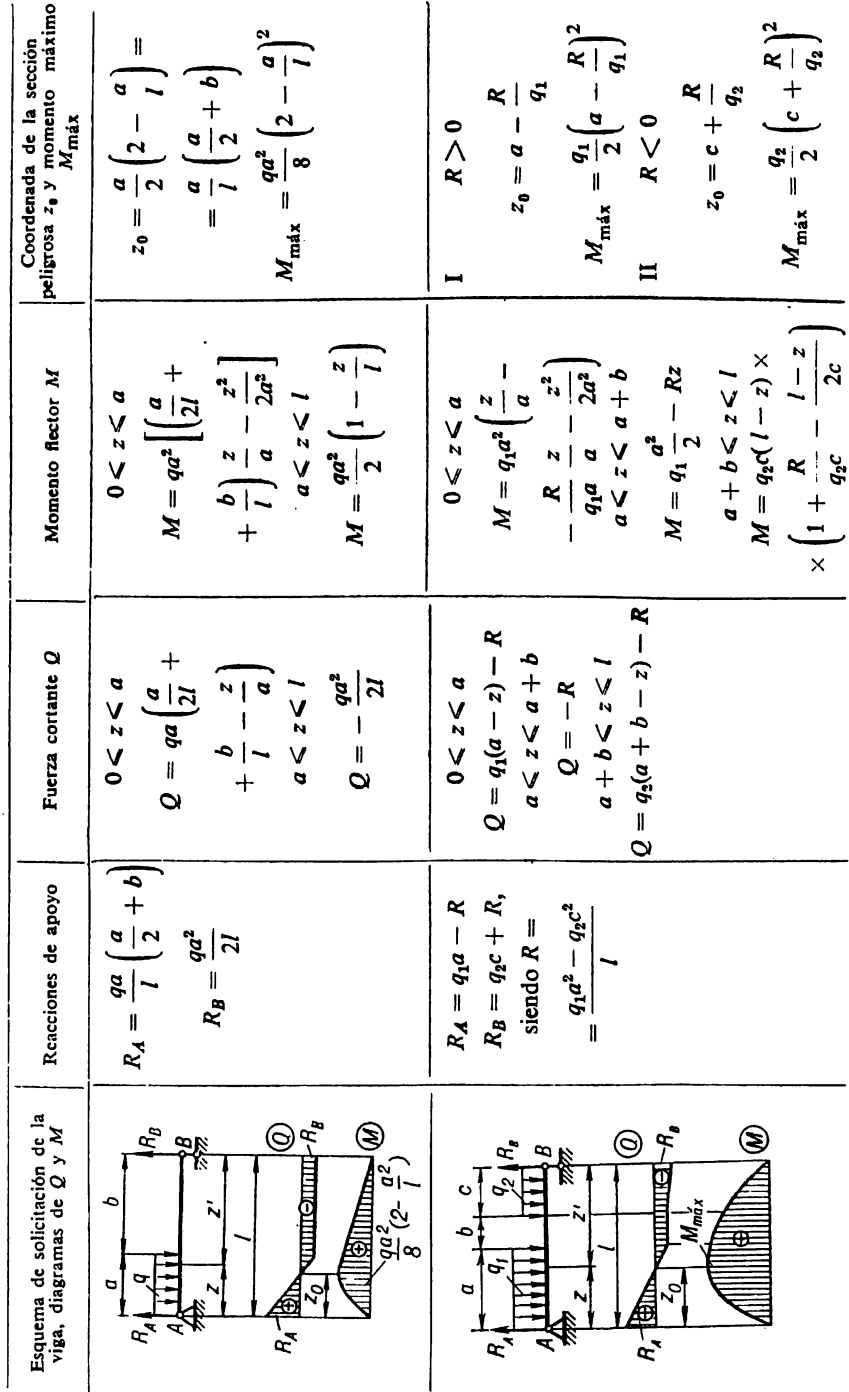 Esquema de solicitación de la
viga, diagramas de Q y M
Reacciones de apoyo
Fuerza cortante Q
Momento flector M
Coordenada de la sección
peligrosa z₀ y momento máximo
Mmáx
a
b
R_A
q
R_B
A
B
z
z'
l
R_A
⊕
⊖
Q
R_B
z₀
⊕
M
qa²/8 (2 - a²/l)
R_A = qa/l (a/2 + b)
R_B = qa²/2l
0 < z < a
Q = qa (a/2l +
+ b/l - z/a)
a < z < l
Q = - qa²/2l
0 < z < a
M = qa² [(a/2l +
+ b/l) z/a - z²/2a²]
a < z < l
M = qa²/2 (1 - z/l)
z₀ = a/2 (2 - a/l) =
= a/l (a/2 + b)
Mmáx = qa²/8 (2 - a/l)²
a
b
c
R_A
q₁
q₂
R_B
A
B
z
z'
l
R_A
⊕
⊖
Q
R_B
z₀
Mmáx
⊕
M
R_A = q₁a - R
R_B = q₂c + R,
siendo R =
= q₁a² - q₂c² / l
0 < z < a
Q = q₁(a - z) - R
a < z < a + b
Q = -R
a + b < z < l
Q = q₂(a + b - z) - R
0 < z < a
M = q₁a² (z/a -
- R/q₁a z/a - z²/2a²)
a < z < a + b
M = q₁ a²/2 - Rz
a + b < z < l
M = q₂c(l - z) ×
× (1 + R/q₂c - l - z/2c)
I R > 0
z₀ = a - R/q₁
Mmáx = q₁/2 (a - R/q₁)²
II R < 0
z₀ = c + R/q₂
Mmáx = q₂/2 (c + R/q₂)²